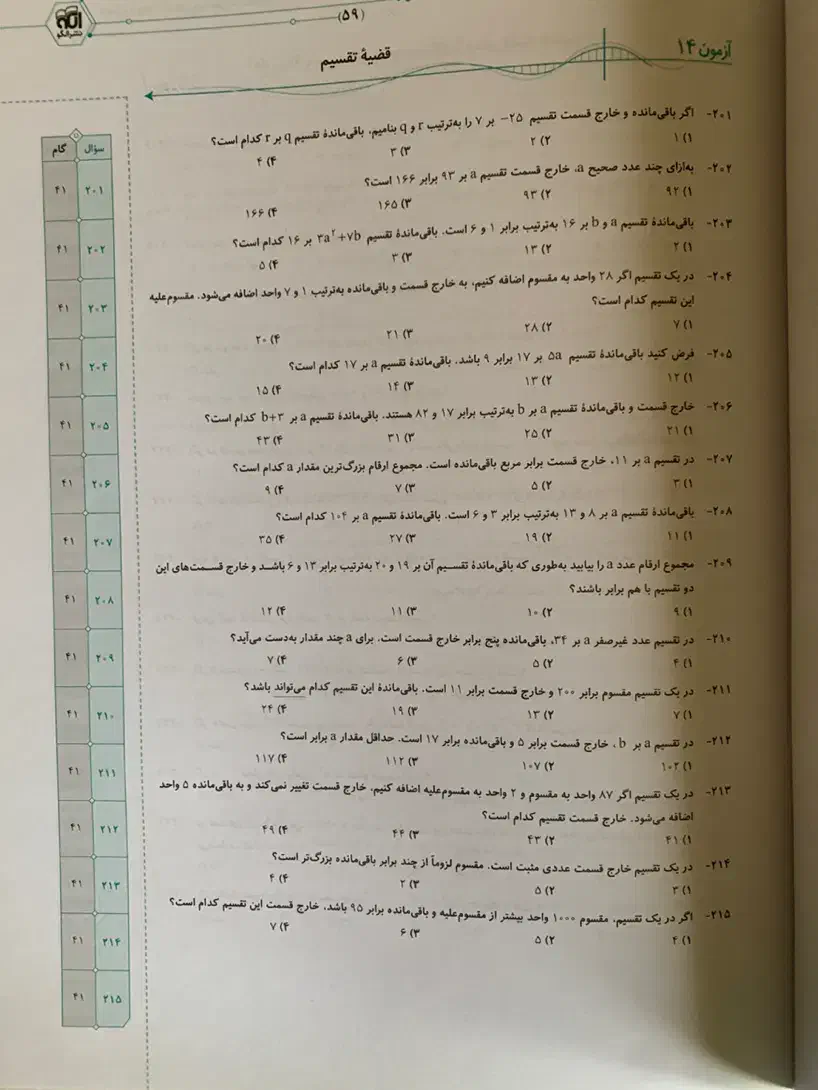 (۵۹)
الگو
نشر الگو
آزمون ۱۴
قضیهٔ تقسیم
۲۰۱- اگر باقی‌مانده و خارج قسمت تقسیم ۲۵- بر ۷ را به‌ترتیب r و q بنامیم، باقی‌ماندهٔ تقسیم q بر r کدام است؟
۱) ۱ ۲) ۲ ۳) ۳ ۴) ۴
۲۰۲- به‌ازای چند عدد صحیح a، خارج قسمت تقسیم a بر ۹۳ برابر ۱۶۶ است؟
۱) ۹۲ ۲) ۹۳ ۳) ۱۶۵ ۴) ۱۶۶
۲۰۳- باقی‌ماندهٔ تقسیم a و b بر ۱۶ به‌ترتیب برابر ۱ و ۶ است. باقی‌ماندهٔ تقسیم ۳a²+۷b بر ۱۶ کدام است؟
۱) ۲ ۲) ۱۳ ۳) ۳ ۴) ۵
۲۰۴- در یک تقسیم اگر ۲۸ واحد به مقسوم اضافه کنیم، به خارج قسمت و باقی‌مانده به‌ترتیب ۱ و ۷ واحد اضافه می‌شود. مقسوم‌علیه
این تقسیم کدام است؟
۱) ۷ ۲) ۲۸ ۳) ۲۱ ۴) ۲۰
۲۰۵- فرض کنید باقی‌ماندهٔ تقسیم ۵a بر ۱۷ برابر ۹ باشد. باقی‌ماندهٔ تقسیم a بر ۱۷ کدام است؟
۱) ۱۲ ۲) ۱۳ ۳) ۱۴ ۴) ۱۵
۲۰۶- خارج قسمت و باقی‌ماندهٔ تقسیم a بر b به‌ترتیب برابر ۱۷ و ۸۲ هستند. باقی‌ماندهٔ تقسیم a بر b+۳ کدام است؟
۱) ۲۱ ۲) ۲۵ ۳) ۳۱ ۴) ۴۳
۲۰۷- در تقسیم a بر ۱۱، خارج قسمت برابر مربع باقی‌مانده است. مجموع ارقام بزرگ‌ترین مقدار a کدام است؟
۱) ۳ ۲) ۵ ۳) ۷ ۴) ۹
۲۰۸- باقی‌ماندهٔ تقسیم a بر ۸ و ۱۳ به‌ترتیب برابر ۳ و ۶ است. باقی‌ماندهٔ تقسیم a بر ۱۰۴ کدام است؟
۱) ۱۱ ۲) ۱۹ ۳) ۲۷ ۴) ۳۵
۲۰۹- مجموع ارقام عدد a را بیابید به‌طوری که باقی‌ماندهٔ تقسیم آن بر ۱۹ و ۲۰ به‌ترتیب برابر ۱۳ و ۶ باشد و خارج قسمت‌های این
دو تقسیم با هم برابر باشند؟
۱) ۹ ۲) ۱۰ ۳) ۱۱ ۴) ۱۲
۲۱۰- در تقسیم عدد غیرصفر a بر ۳۴، باقی‌مانده پنج برابر خارج قسمت است. برای a چند مقدار به‌دست می‌آید؟
۱) ۴ ۲) ۵ ۳) ۶ ۴) ۷
۲۱۱- در یک تقسیم مقسوم برابر ۲۰۰ و خارج قسمت برابر ۱۱ است. باقی‌ماندهٔ این تقسیم کدام می‌تواند باشد؟
۱) ۷ ۲) ۱۳ ۳) ۱۹ ۴) ۲۴
۲۱۲- در تقسیم a بر b، خارج قسمت برابر ۵ و باقی‌مانده برابر ۱۷ است. حداقل مقدار a برابر است؟
۱) ۱۰۲ ۲) ۱۰۷ ۳) ۱۱۲ ۴) ۱۱۷
۲۱۳- در یک تقسیم اگر ۸۷ واحد به مقسوم و ۲ واحد به مقسوم‌علیه اضافه کنیم، خارج قسمت تغییر نمی‌کند و به باقی‌مانده ۵ واحد
اضافه می‌شود. خارج قسمت تقسیم کدام است؟
۱) ۴۱ ۲) ۴۳ ۳) ۴۴ ۴) ۴۹
۲۱۴- در یک تقسیم خارج قسمت عددی مثبت است. مقسوم لزوماً از چند برابر باقی‌مانده بزرگ‌تر است؟
۱) ۳ ۲) ۵ ۳) ۲ ۴) ۴
۲۱۵- اگر در یک تقسیم، مقسوم ۱۰۰۰ واحد بیشتر از مقسوم‌علیه و باقی‌مانده برابر ۹۵ باشد، خارج قسمت این تقسیم کدام است؟
۱) ۴ ۲) ۵ ۳) ۶ ۴) ۷
سؤال گام
۲۰۱ ۴۱
۲۰۲ ۴۱
۲۰۳ ۴۱
۲۰۴ ۴۱
۲۰۵ ۴۱
۲۰۶ ۴۱
۲۰۷ ۴۱
۲۰۸ ۴۱
۲۰۹ ۴۱
۲۱۰ ۴۱
۲۱۱ ۴۱
۲۱۲ ۴۱
۲۱۳ ۴۱
۲۱۴ ۴۱
۲۱۵ ۴۱